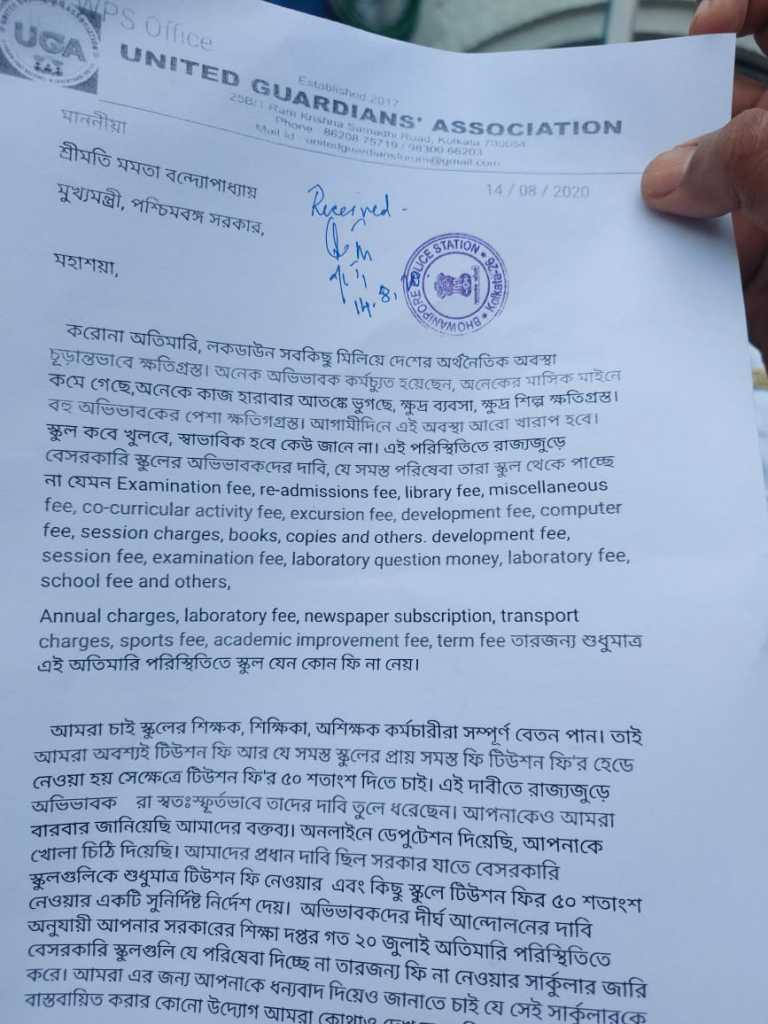 WPS Office
UGA
UNITED GUARDIANS' ASSOCIATION
Established 2017
25B/1 Ram Krishna Samadhi Road, Kolkata 700054
Phone : 86208 75719 / 98300 66203
Mail Id : unitedguardiansforum@gmail.com
14 / 08 / 2020
মাননীয়া
শ্রীমতি মমতা বন্দ্যোপাধ্যায়
মুখ্যমন্ত্রী, পশ্চিমবঙ্গ সরকার,
Received -
14.8.
BHOWANIPORE POLICE STATION
Kolkata-
মহাশয়া,
করোনা অতিমারি, লকডাউন সবকিছু মিলিয়ে দেশের অর্থনৈতিক অবস্থা
চূড়ান্তভাবে ক্ষতিগ্রস্ত। অনেক অভিভাবক কর্মচ্যুত হয়েছেন, অনেকের মাসিক মাইনে
কমে গেছে,অনেকে কাজ হারাবার আতঙ্কে ভুগছে, ক্ষুদ্র ব্যবসা, ক্ষুদ্র শিল্প ক্ষতিগ্রস্ত।
বহু অভিভাবকের পেশা ক্ষতিগগ্রস্ত। আগামীদিনে এই অবস্থা আরো খারাপ হবে।
স্কুল কবে খুলবে, স্বাভাবিক হবে কেউ জানে না। এই পরিস্থিতিতে রাজ্যজুড়ে
বেসরকারি স্কুলের অভিভাবকদের দাবি, যে সমস্ত পরিষেবা তারা স্কুল থেকে পাচ্ছে
না যেমন Examination fee, re-admissions fee, library fee, miscellaneous
fee, co-curricular activity fee, excursion fee, development fee, computer
fee, session charges, books, copies and others. development fee,
session fee, examination fee, laboratory question money, laboratory fee,
school fee and others,
Annual charges, laboratory fee, newspaper subscription, transport
charges, sports fee, academic improvement fee, term fee তারজন্য শুধুমাত্র
এই অতিমারি পরিস্থিতিতে স্কুল যেন কোন ফি না নেয়।
আমরা চাই স্কুলের শিক্ষক, শিক্ষিকা, অশিক্ষক কর্মচারীরা সম্পূর্ণ বেতন পান। তাই
আমরা অবশ্যই টিউশন ফি আর যে সমস্ত স্কুলের প্রায় সমস্ত ফি টিউশন ফি'র হেডে
নেওয়া হয় সেক্ষেত্রে টিউশন ফি'র ৫০ শতাংশ দিতে চাই। এই দাবীতে রাজ্যজুড়ে
অভিভাবক রা স্বতঃস্ফূর্তভাবে তাদের দাবি তুলে ধরেছেন। আপনাকেও আমরা
বারবার জানিয়েছি আমাদের বক্তব্য। অনলাইনে ডেপুটেশন দিয়েছি, আপনাকে
খোলা চিঠি দিয়েছি। আমাদের প্রধান দাবি ছিল সরকার যাতে বেসরকারি
স্কুলগুলিকে শুধুমাত্র টিউশন ফি নেওয়ার এবং কিছু স্কুলে টিউশন ফির ৫০ শতাংশ
নেওয়ার একটি সুনির্দিষ্ট নির্দেশ দেয়। অভিভাবকদের দীর্ঘ আন্দোলনের দাবি
অনুযায়ী আপনার সরকারের শিক্ষা দপ্তর গত ২০ জুলাই অতিমারি পরিস্থিতিতে
বেসরকারি স্কুলগুলি যে পরিষেবা দিচ্ছে না তারজন্য ফি না নেওয়ার সার্কুলার জারি
করে। আমরা এর জন্য আপনাকে ধন্যবাদ দিয়েও জানাতে চাই যে সেই সার্কুলারকে
বাস্তবায়িত করার কোনো উদ্যোগ আমরা কোথাও